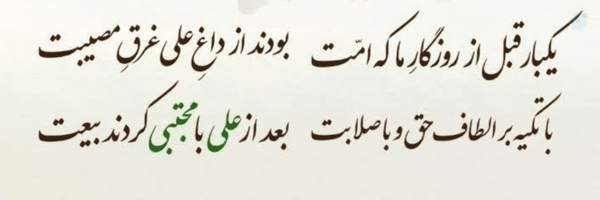 یکبار قبل از روزگارِ ما که امّت بودند از داغِ علی غرقِ مصیبت
با تکیه بر الطاف حق و با صلابت بعد از علی با مجتبی کردند بیعت